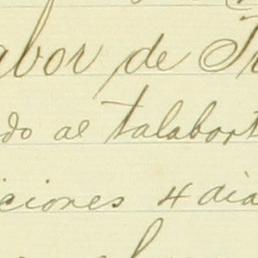 abor de
do al talabart
ciones 4 dia